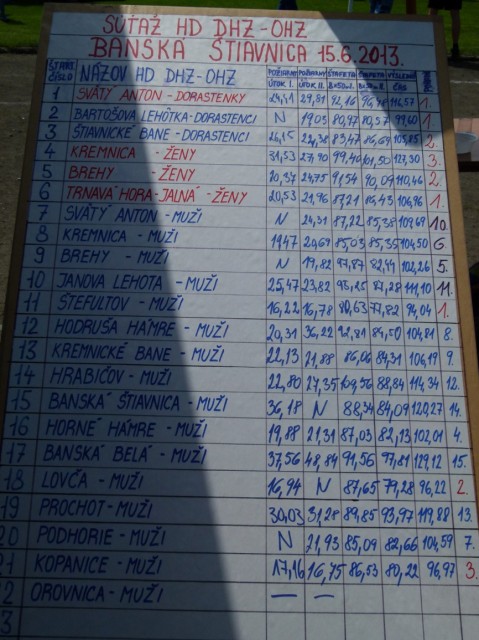 SÚŤAŽ HD DHZ-OHZ
BANSKÁ ŠTIAVNICA 15.6.2013.
ŠTART. ČÍSLO NÁZOV HD DHZ-OHZ POŽIARNY ÚTOK I. POŽIARNY ÚTOK II. ŠTAFETA ŠTAFETA VÝSLEDNÝ ČAS
1 SVÄTÝ ANTON - DORASTENKY 29,81 92,16 116,57 1.
2 BARTOŠOVA LEHÔTKA-DORASTENCI N 19,05 80,97 80,57 99,60 1.
3 ŠTIAVNICKÉ BANE - DORASTENCI 22,38 83,47 105,85 2.
4 KREMNICA - ŽENY 31,53 27,90 99,40 101,50 127,30 3.
5 BREHY - ŽENY 20,37 24,75 91,54 90,09 110,46 2.
6 TRNAVÁ HORA-JALNÁ - ŽENY 20,53 21,96 87,21 86,43 106,96 1.
7 SVÄTÝ ANTON - MUŽI N 24,31 87,22 85,38 109,69 10.
8 KREMNICA - MUŽI 19,47 20,69 85,03 85,35 104,50 6.
9 BREHY - MUŽI N 19,82 82,44 102,26 5.
10 JANOVA LEHOTA - MUŽI 25,47 23,82 87,28 111,10 11.
11 ŠTEFULTOV - MUŽI 16,22 16,78 80,63 77,82 94,04 1.
12 HODRUŠA HÁMRE - MUŽI 20,31 36,22 92,81 84,50 104,81 8.
13 KREMNICKÉ BANE - MUŽI 22,13 21,88 86,06 84,31 106,19 9.
14 HRABIČOV - MUŽI 22,80 27,35 109,56 88,84 114,34 12.
15 BANSKÁ ŠTIAVNICA - MUŽI 36,18 N 88,34 84,09 120,27 14.
16 HORNÉ HÁMRE - MUŽI 19,88 21,31 87,03 82,13 102,01 4.
17 BANSKÁ BELÁ - MUŽI 37,56 48,84 91,56 97,81 129,12 15.
18 LOVČA - MUŽI 16,94 N 87,65 79,28 96,22 2.
19 PROCHOT - MUŽI 30,03 31,28 89,85 93,97 119,88 13.
20 PODHORIE - MUŽI N 21,93 85,09 82,66 104,59 7.
21 KOPANICE - MUŽI 17,16 16,75 86,53 80,22 96,97 3.
2 OROVNICA - MUŽI — —
3